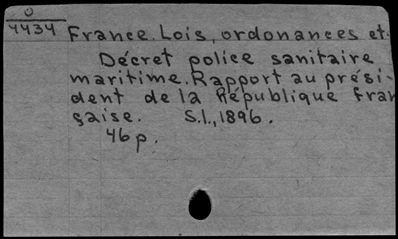 O
4434
France. Lois, ordonances et
Décret police sanitaire
maritime. Rapport au prési-
dent de la République fran
çaise. S.l., 1896.
46 p.